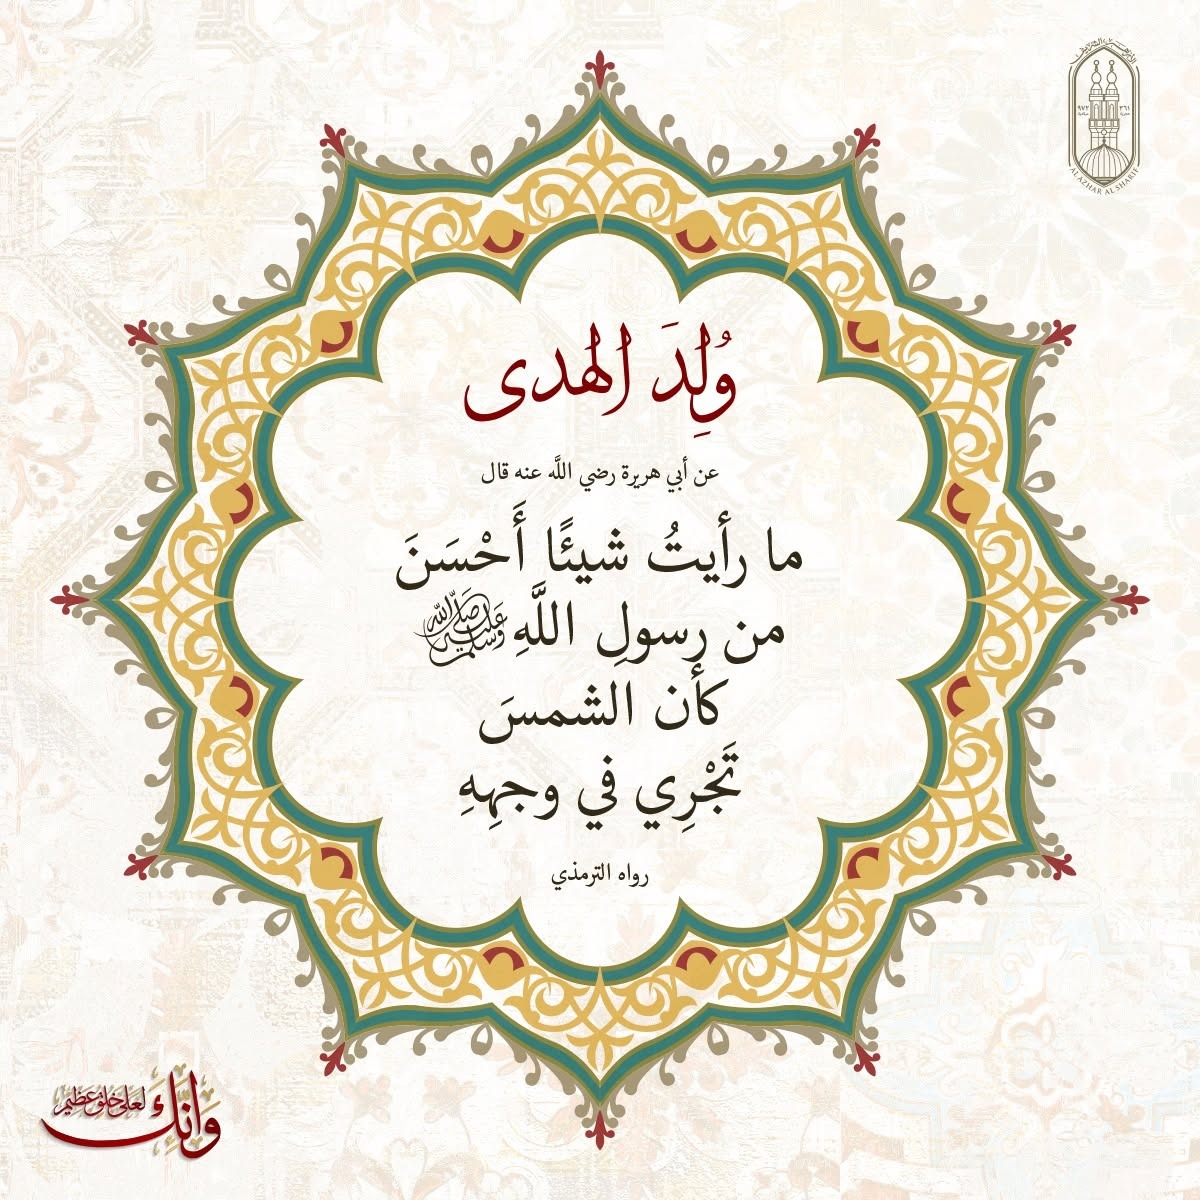 الأزهر الشريف
٩٧٢ ٣٦١
ميلادية هجرية
AL AZHAR AL SHARIF
وُلِدَ الهدى
عن أبي هريرة رضي اللَّه عنه قال
ما رأيتُ شيئًا أَحْسَنَ
من رسولِ اللَّهِ ﷺ
كأن الشمسَ
تَجْرِي في وجهِهِ
رواه الترمذي
وَإِنَّكَ لَعَلَى خُلُقٍ عَظِيمٍ